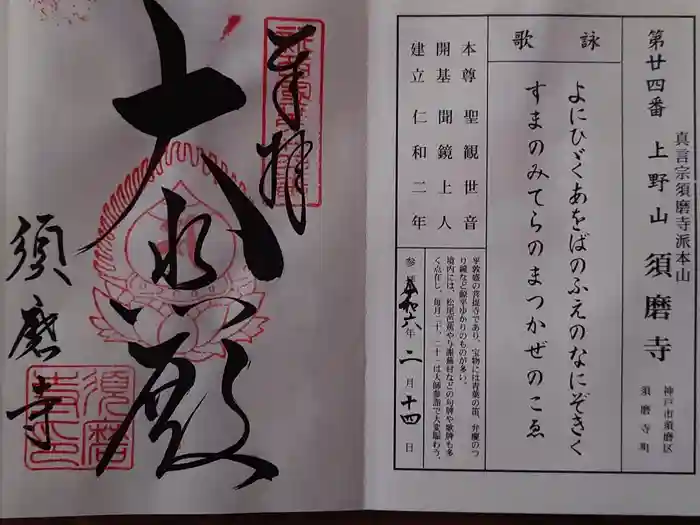 真言宗須磨寺派本山
第廿四番 上野山 須磨寺
神戸市須磨区
須磨寺町
詠歌
よにひゞくあをばのふえのなにぞきく
すまのみてらのまつかぜのこゑ
本尊 聖観世音
開基 聞鏡上人
建立 仁和二年
平敦盛の菩提寺であり、宝物には青葉の笛、弁慶のつ
り鐘など源平ゆかりのものが多い。
境内には、松尾芭蕉や与謝蕪村などの句碑や歌碑も多
く点在し、毎月二十、二十一は大師参詣で大変賑わう。
令和六年二月十四日
奉拝
大悲殿
須磨寺